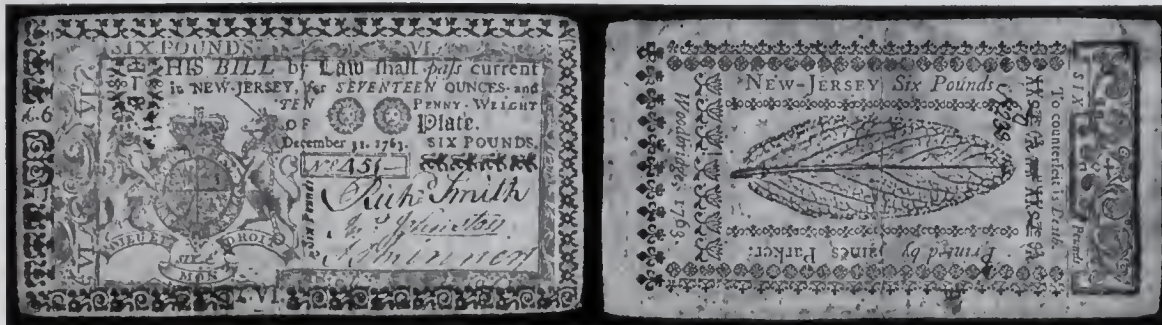 SIX POUNDS. VI.
THIS BILL by Law shall pass current
in NEW-JERSEY, for SEVENTEEN OUNCES and
TEN PENNY-WEIGHT
OF Plate.
December 31. 1763. SIX POUNDS.
No 451
Richd Smith
Jno Johnston
Skinner
Six Pounds
£.6
VI
DIEU ET
MON
DROIT
VI.
NEW-JERSEY Six Pounds
Woodbridge, 1763.
Printed by James Parker.
To counterfeit is Death.
SIX
Pounds